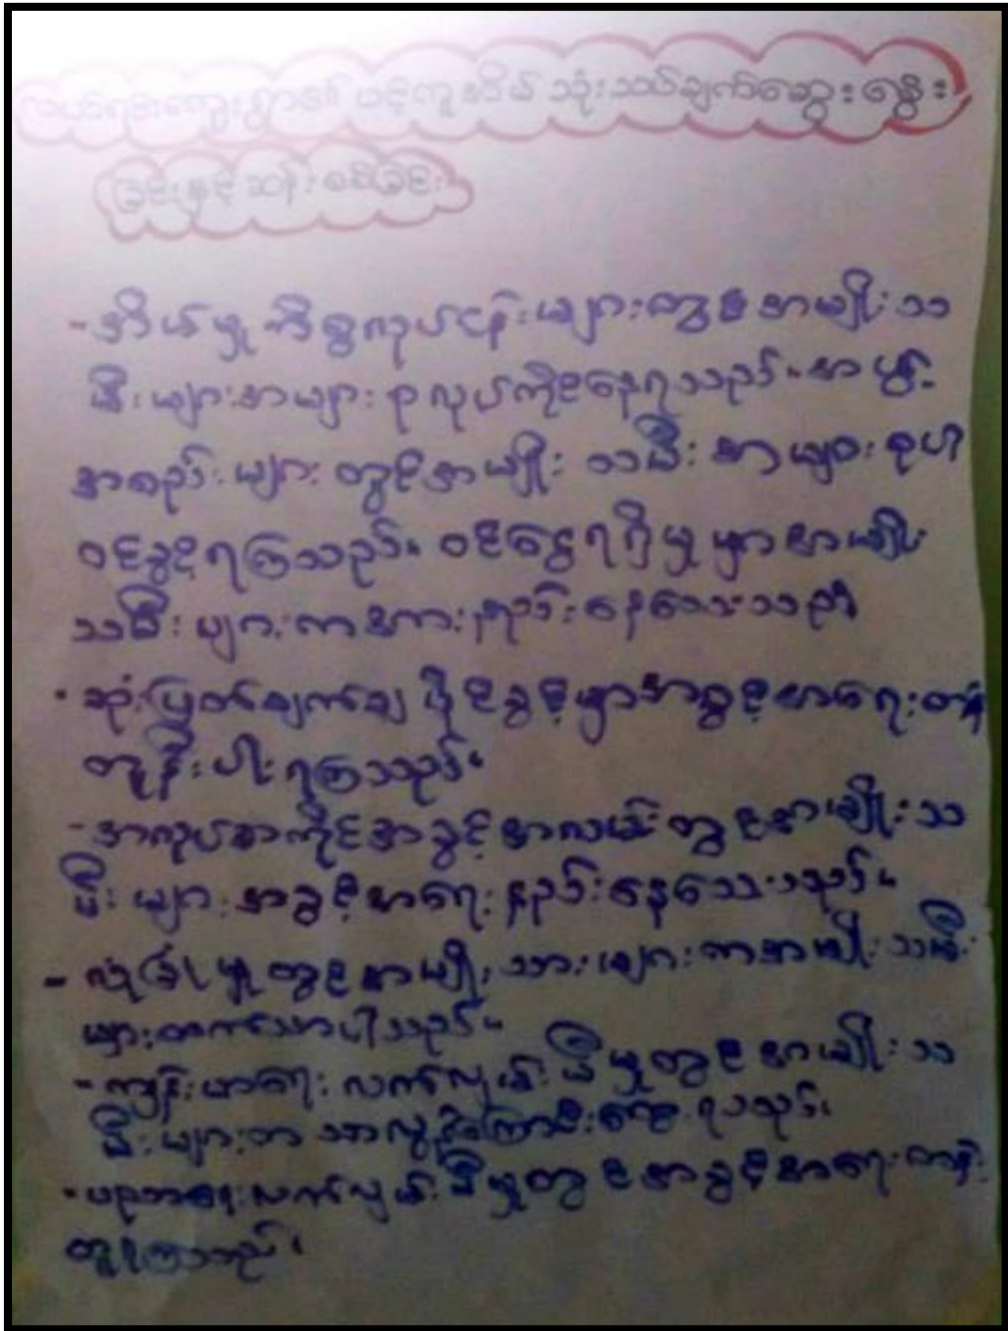 သုံးသပ်ချက်ဆွေးနွေး
ခြင်းနှင့်ဆန်းစစ်ခြင်း
-အိမ်မှုကိစ္စလုပ်ငန်းများတွင်အမျိုးသ
မီးများအများစုလုပ်ကိုင်နေရသည်။အဖွဲ့
အစည်းများတွင်အမျိုးသမီးအများစုပါ
ဝင်ခွင့်ရကြသည်။ ဝင်ငွေရရှိမှုမှာအမျိုး
သမီးများကအားနည်းနေသေးသည်။
-ဆုံးဖြတ်ချက်ချပိုင်ခွင့်မှာအခွင့်အရေးတန်း
တူနီးပါးရကြသည်။
-အလုပ်အကိုင်အခွင့်အလမ်းတွင်အမျိုးသ
မီးများအခွင့်အရေးနည်းနေသေးသည်။
-လုံခြုံမှုတွင်အမျိုးသားများကအမျိုးသမီး
များထက်သာပါသည်။
-ကျန်းမာရေးလက်လှမ်းမီမှုတွင်အမျိုးသ
မီးများက ရသည်။
-ပညာရေးလက်လှမ်းမီမှုတွင်အခွင့်အရေးတန်း
တူရကြသည်။